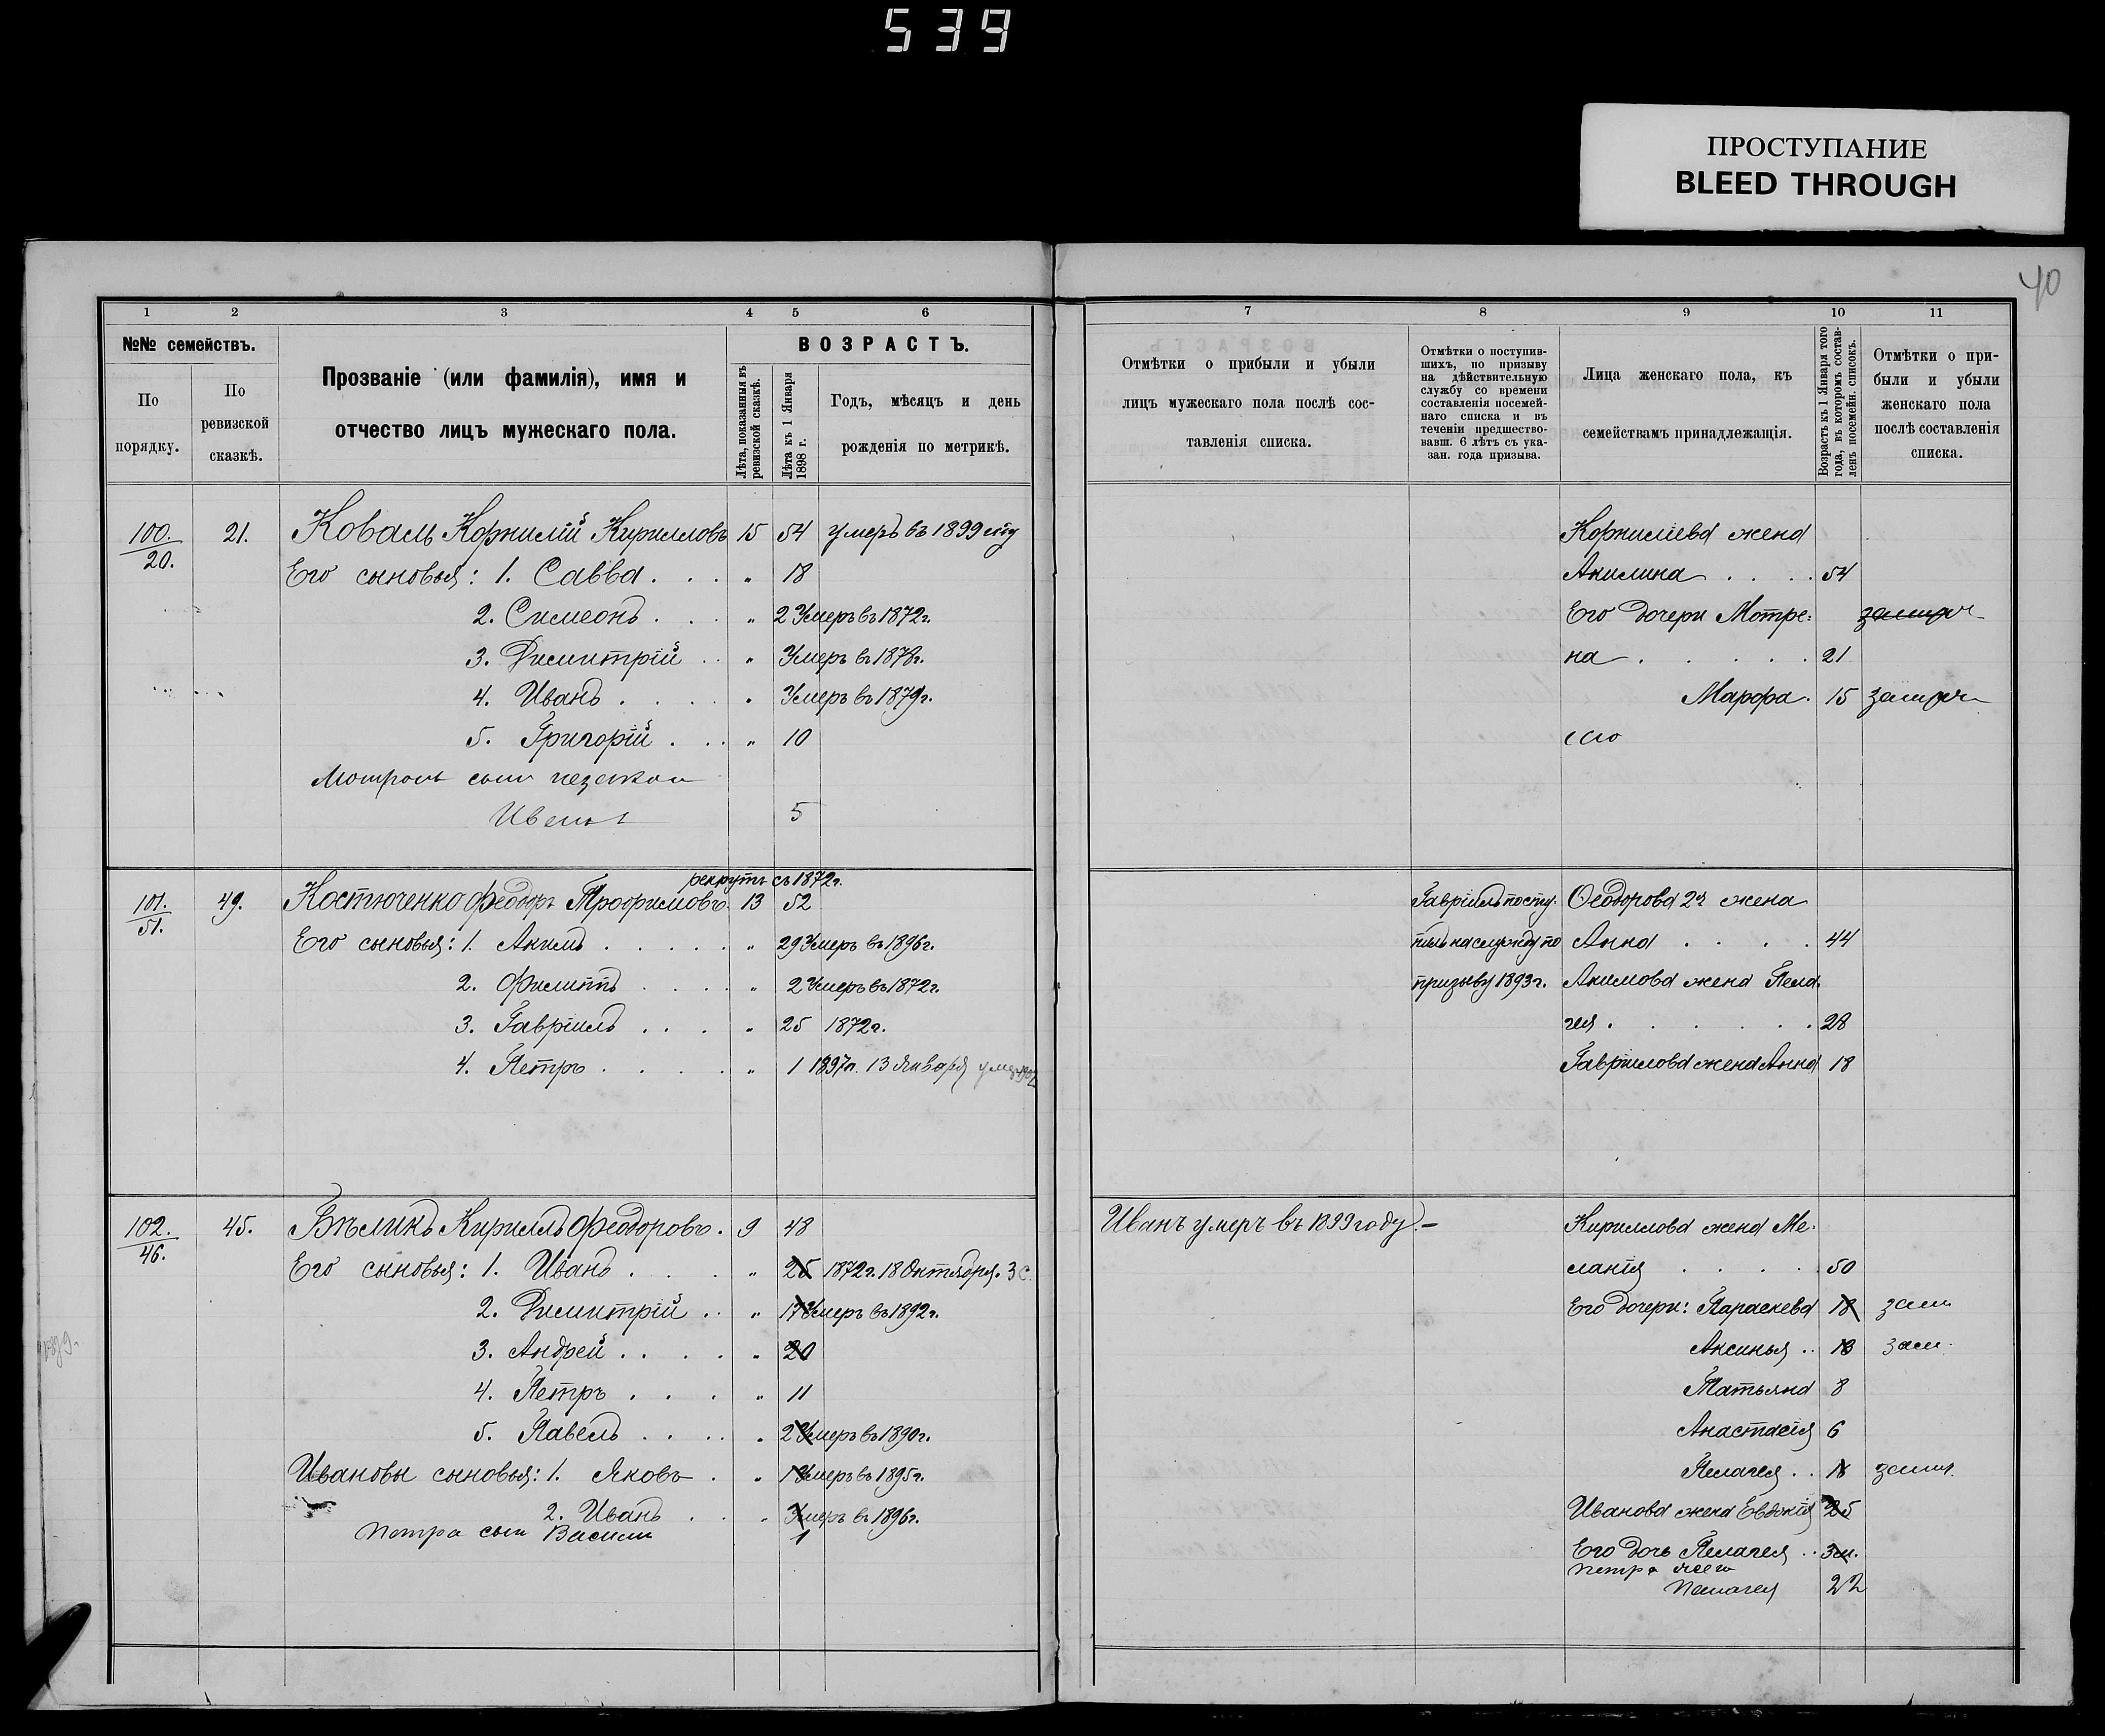 539
ПРОСТУПАНИЕ
BLEED THROUGH
40
1 2 3 4 5 6
№№ семействъ.
По порядку.
По ревизской сказкѣ.
Прозваніе (или фамилія), имя и
отчество лицъ мужескаго пола.
ВОЗРАСТЪ.
Лѣта, показанныя въ ревизской сказкѣ.
Лѣта къ 1 Января 1898 г.
Годъ, мѣсяцъ и день
рожденія по метрикѣ.
7 8 9 10 11
Отмѣтки о прибыли и убыли
лицъ мужескаго пола послѣ сос-
тавленія списка.
Отмѣтки о поступив-
шихъ, по призыву
на дѣйствительную
службу со времени
составленія посемей-
наго списка и въ
теченіи предшество-
вавш. 6 лѣтъ съ ука-
зан. года призыва.
Лица женскаго пола, къ
семействамъ принадлежащія.
Возрастъ къ 1 Января того
года, въ которомъ состав-
ленъ посемейн. списокъ.
Отмѣтки о при-
были и убыли
женскаго пола
послѣ составленія
списка.
100. 21. Коваль Корнилій Кирилловъ 15 54 умеръ въ 1899 году
20.
Его сыновья: 1. Савва . . . „ 18
2. Симеонъ . . . „ 2 Умеръ въ 1872г.
3. Димитрій . . „ Умеръ въ 1878г.
4. Иванъ . . . . „ Умеръ въ 1879г.
5. Григорій . . . „ 10
сын
5
Корниліева жена
Акилина . . . . 54
Его дочери Мотре-
на . . . . . . 21
Марфа. 15 замуж
рекрутъ съ 1872г.
101. 49. Костюченко Феодоръ Трофимовъ. 13 52
51.
Его сыновья: 1. Акимъ . . . . . „ 29 Умеръ въ 1896г.
2. Филиппъ . . . . „ 2 Умеръ въ 1872г.
3. Гавріилъ . . . „ 25 1872г.
4. Петръ . . . . . „ 1 1897г. 13 Января
Гавріилъ посту-
пилъ на службу по
призыву 1893г.
Ѳеодорова 2я жена
Анна . . . . 44
Акимова жена Пела-
гея . . . . . . 28
Гавріилова жена Анна 18
102. 45. Бѣликъ Кириллъ Феодоровъ. 9 48
46.
Его сыновья: 1. Иванъ . . . . „ 25 1872г. 18 Октября.
2. Димитрій . . „ 17 Умеръ въ 1892г.
3. Андрей . . . . „ 20
4. Петръ . . . . „ 11
5. Павелъ . . . . „ 2 Умеръ въ 1890г.
Ивановы сыновья: 1. Яковъ . „ 1 Умеръ въ 1895г.
2. Иванъ . . „ Умеръ въ 1896г.
Петра сын Васили 1
Иванъ умеръ въ 1899 году. –
Кириллова жена Ме-
ланія . . . . . 50
Его дочери: Параскева 18 зам
Аксинья . . 13 зам.
Татьяна 8
Анастасія 6
Пелагея . . 18 замуж.
Иванова жена Евдокія 25
Его дочь Пелагея . . 3м.
Петра жена
Пелагея 22